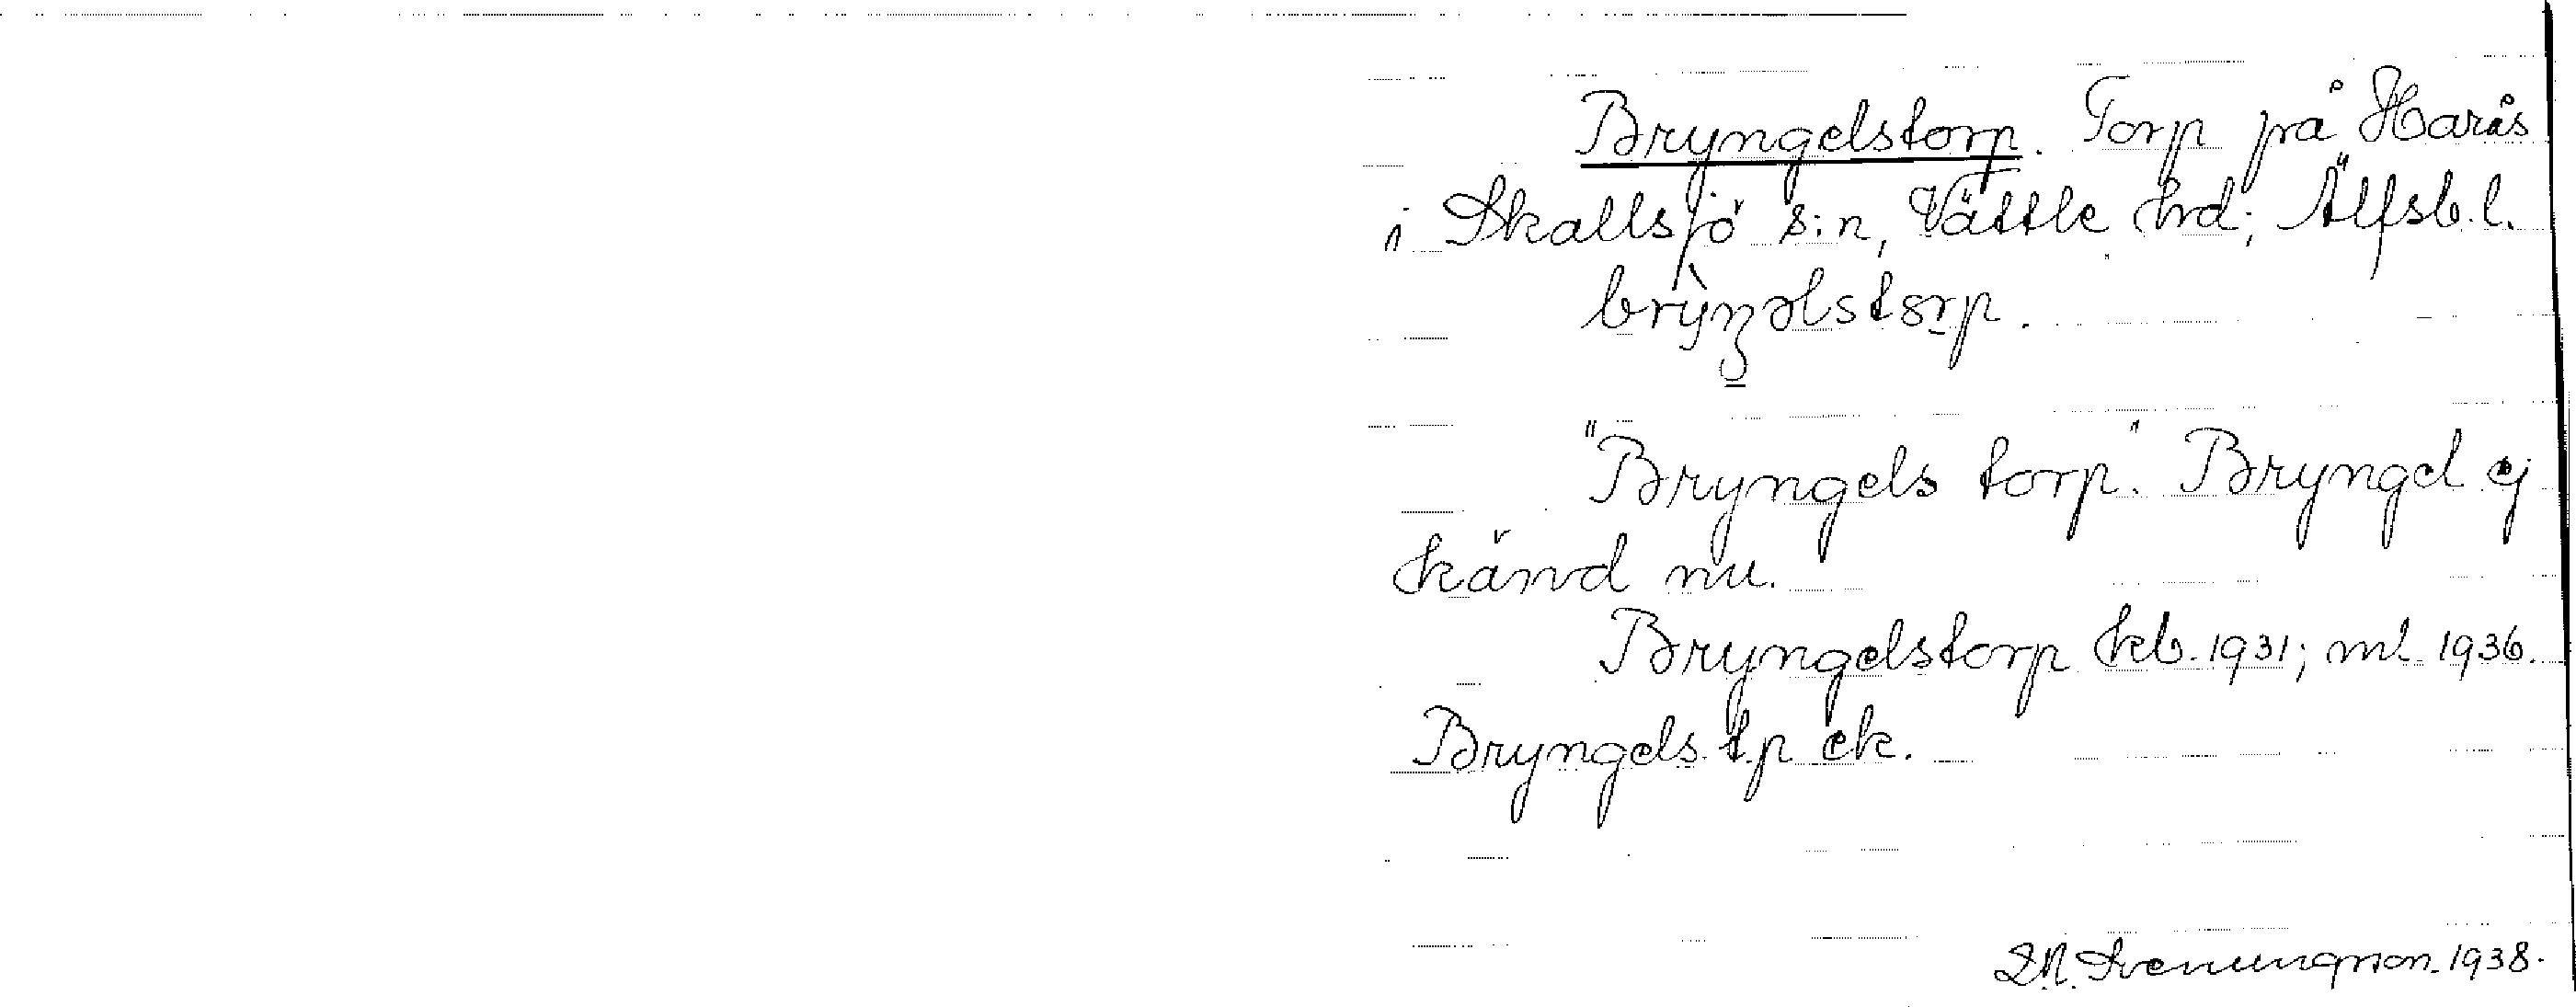 Bryngelstorp. Torp på Harås
i Skallsjö s:n, Vättle hrd; Älfsb. l.
"Bryngels torp". Bryngel ej
känd nu.
Bryngelstorp kb. 1931; ml. 1936.
Bryngels tp ek.
Svenungsson 1938.